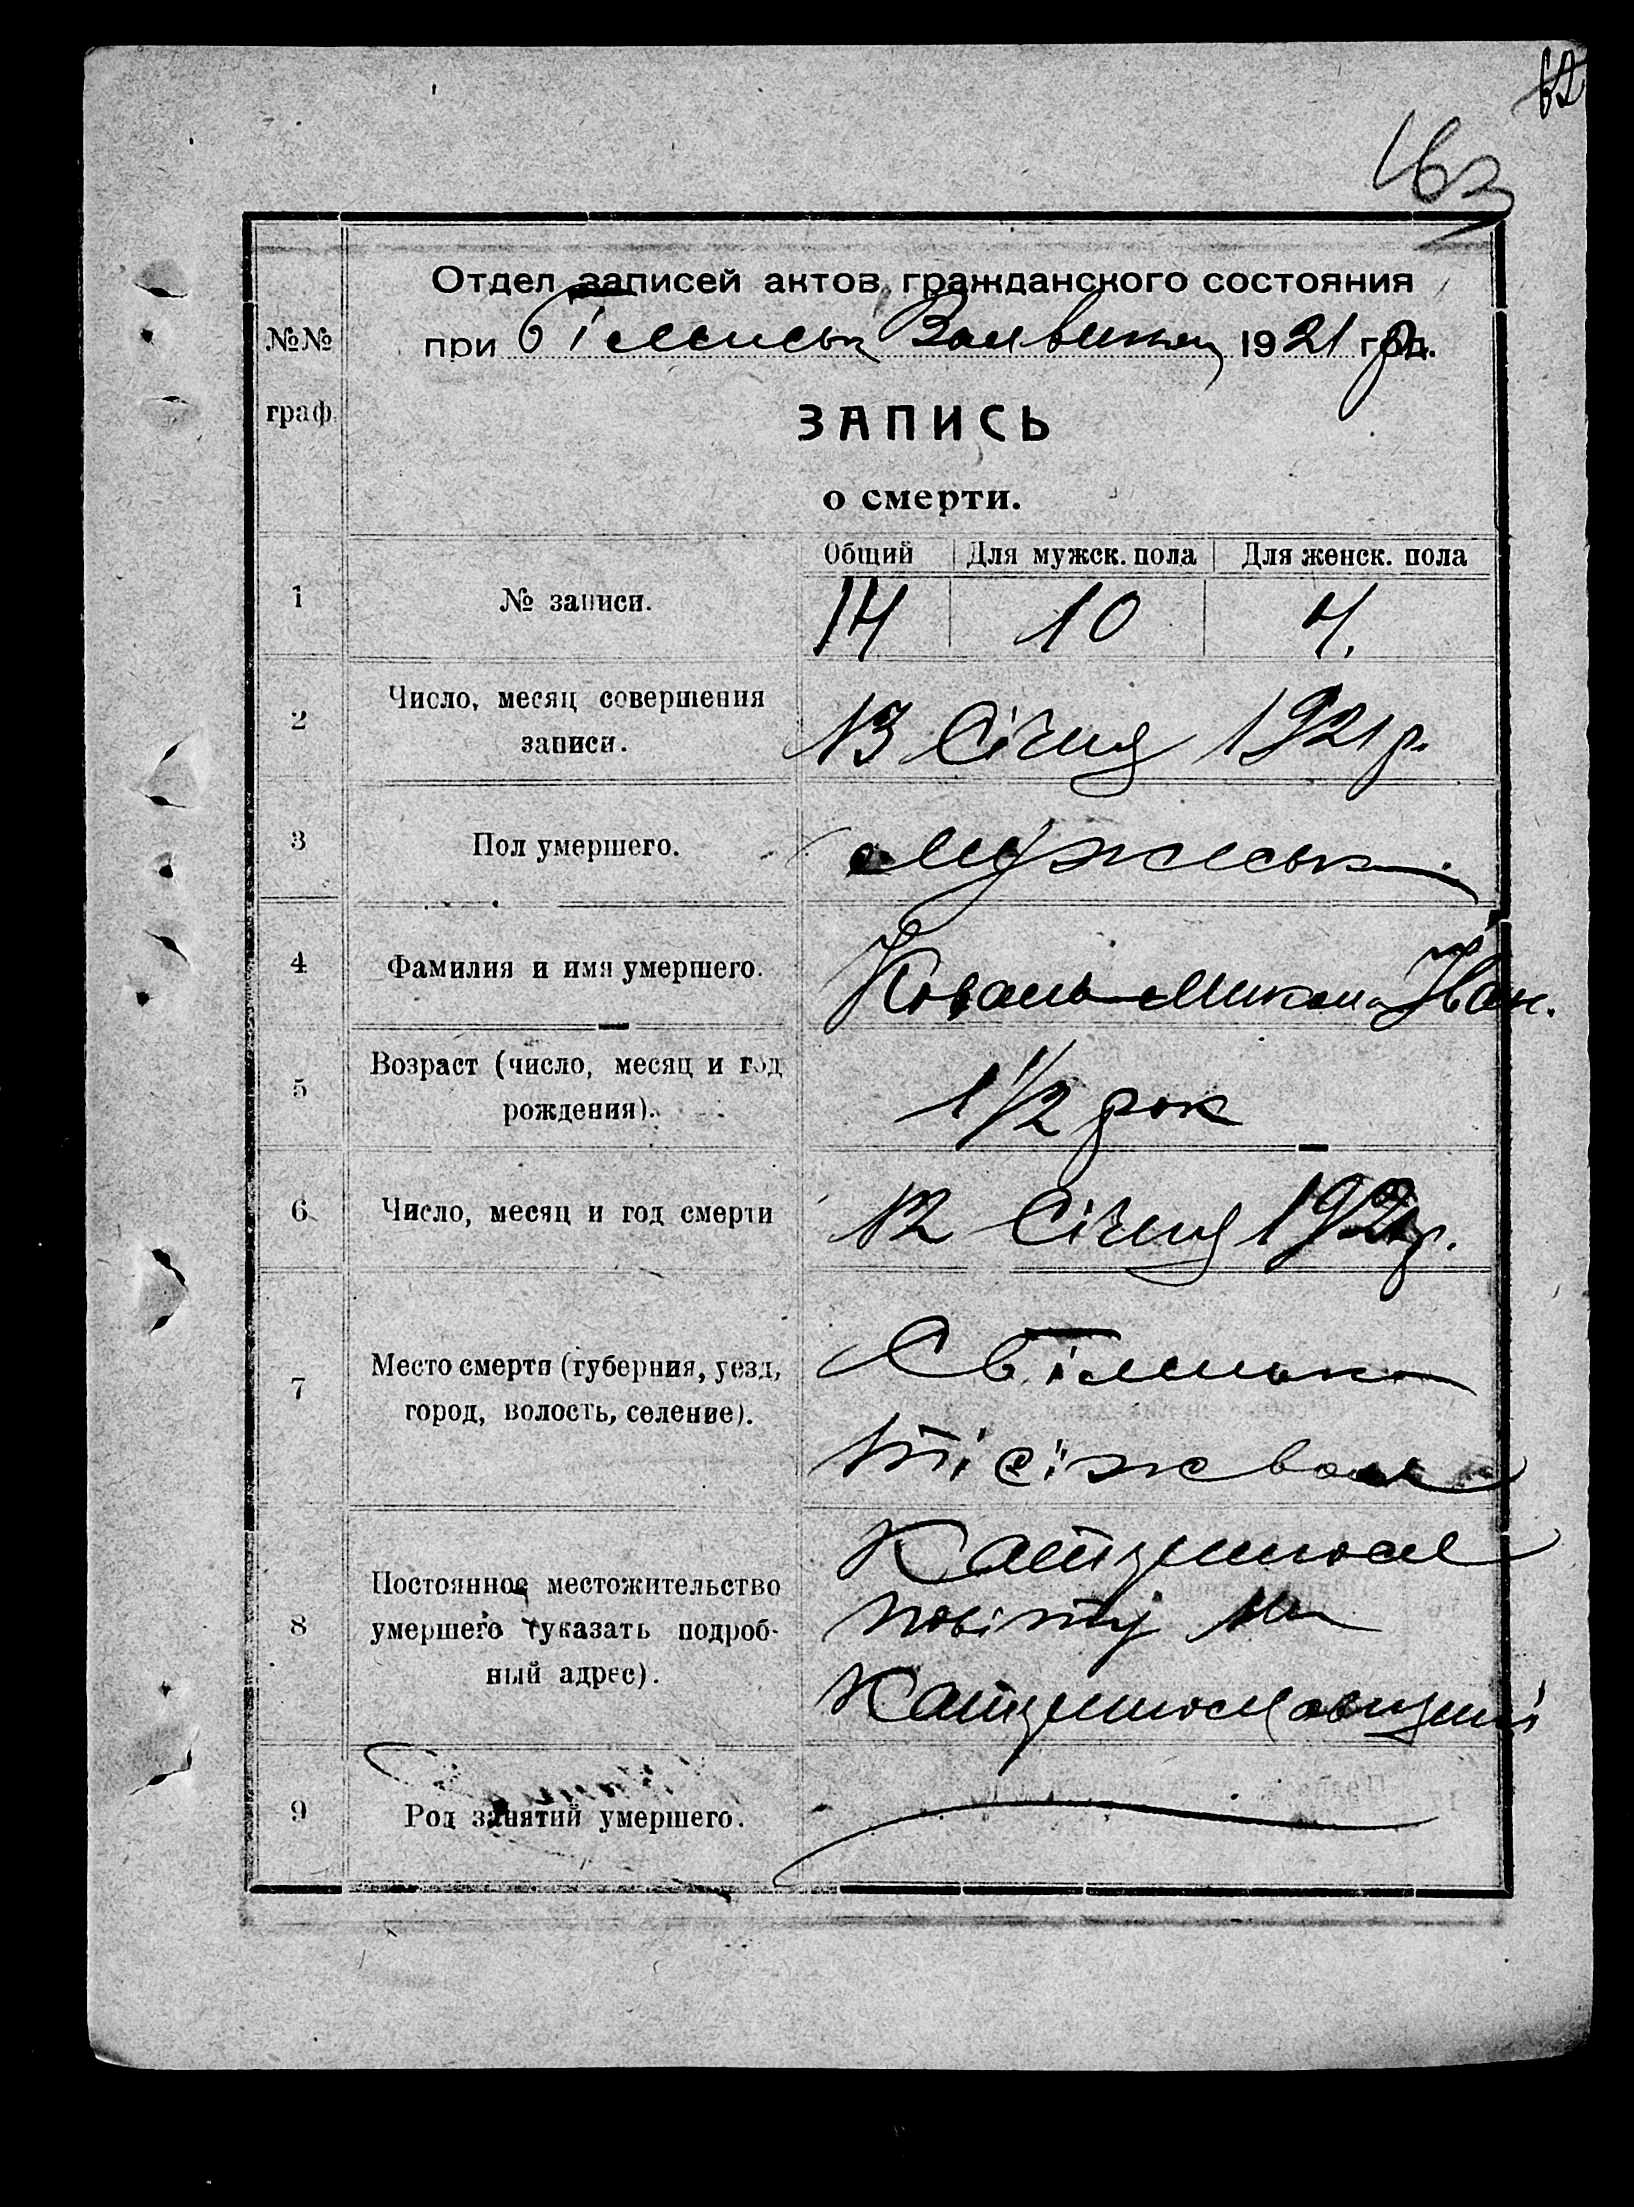 163
Отдел записей актов гражданского состояния
при 1921 год.
№№
граф.
ЗАПИСЬ
о смерти.
Общий Для мужск. пола Для женск. пола
1 № записи. 14 10 4.
2 Число, месяц совершения
записи. 13 Січня 1921 р.
3 Пол умершего. Мужеськ.
4 Фамилия и имя умершего. Коваль Микола Іван.
5 Возраст (число, месяц и год
рождения). 1 1/2 рок
6 Число, месяц и год смерти 12 Січня 1921 р.
7 Место смерти (губерния, уезд,
город, волость, селение).
8 Постоянное местожительство
умершего (указать подроб-
ный адрес).
повіту
9 Род занятий умершего.